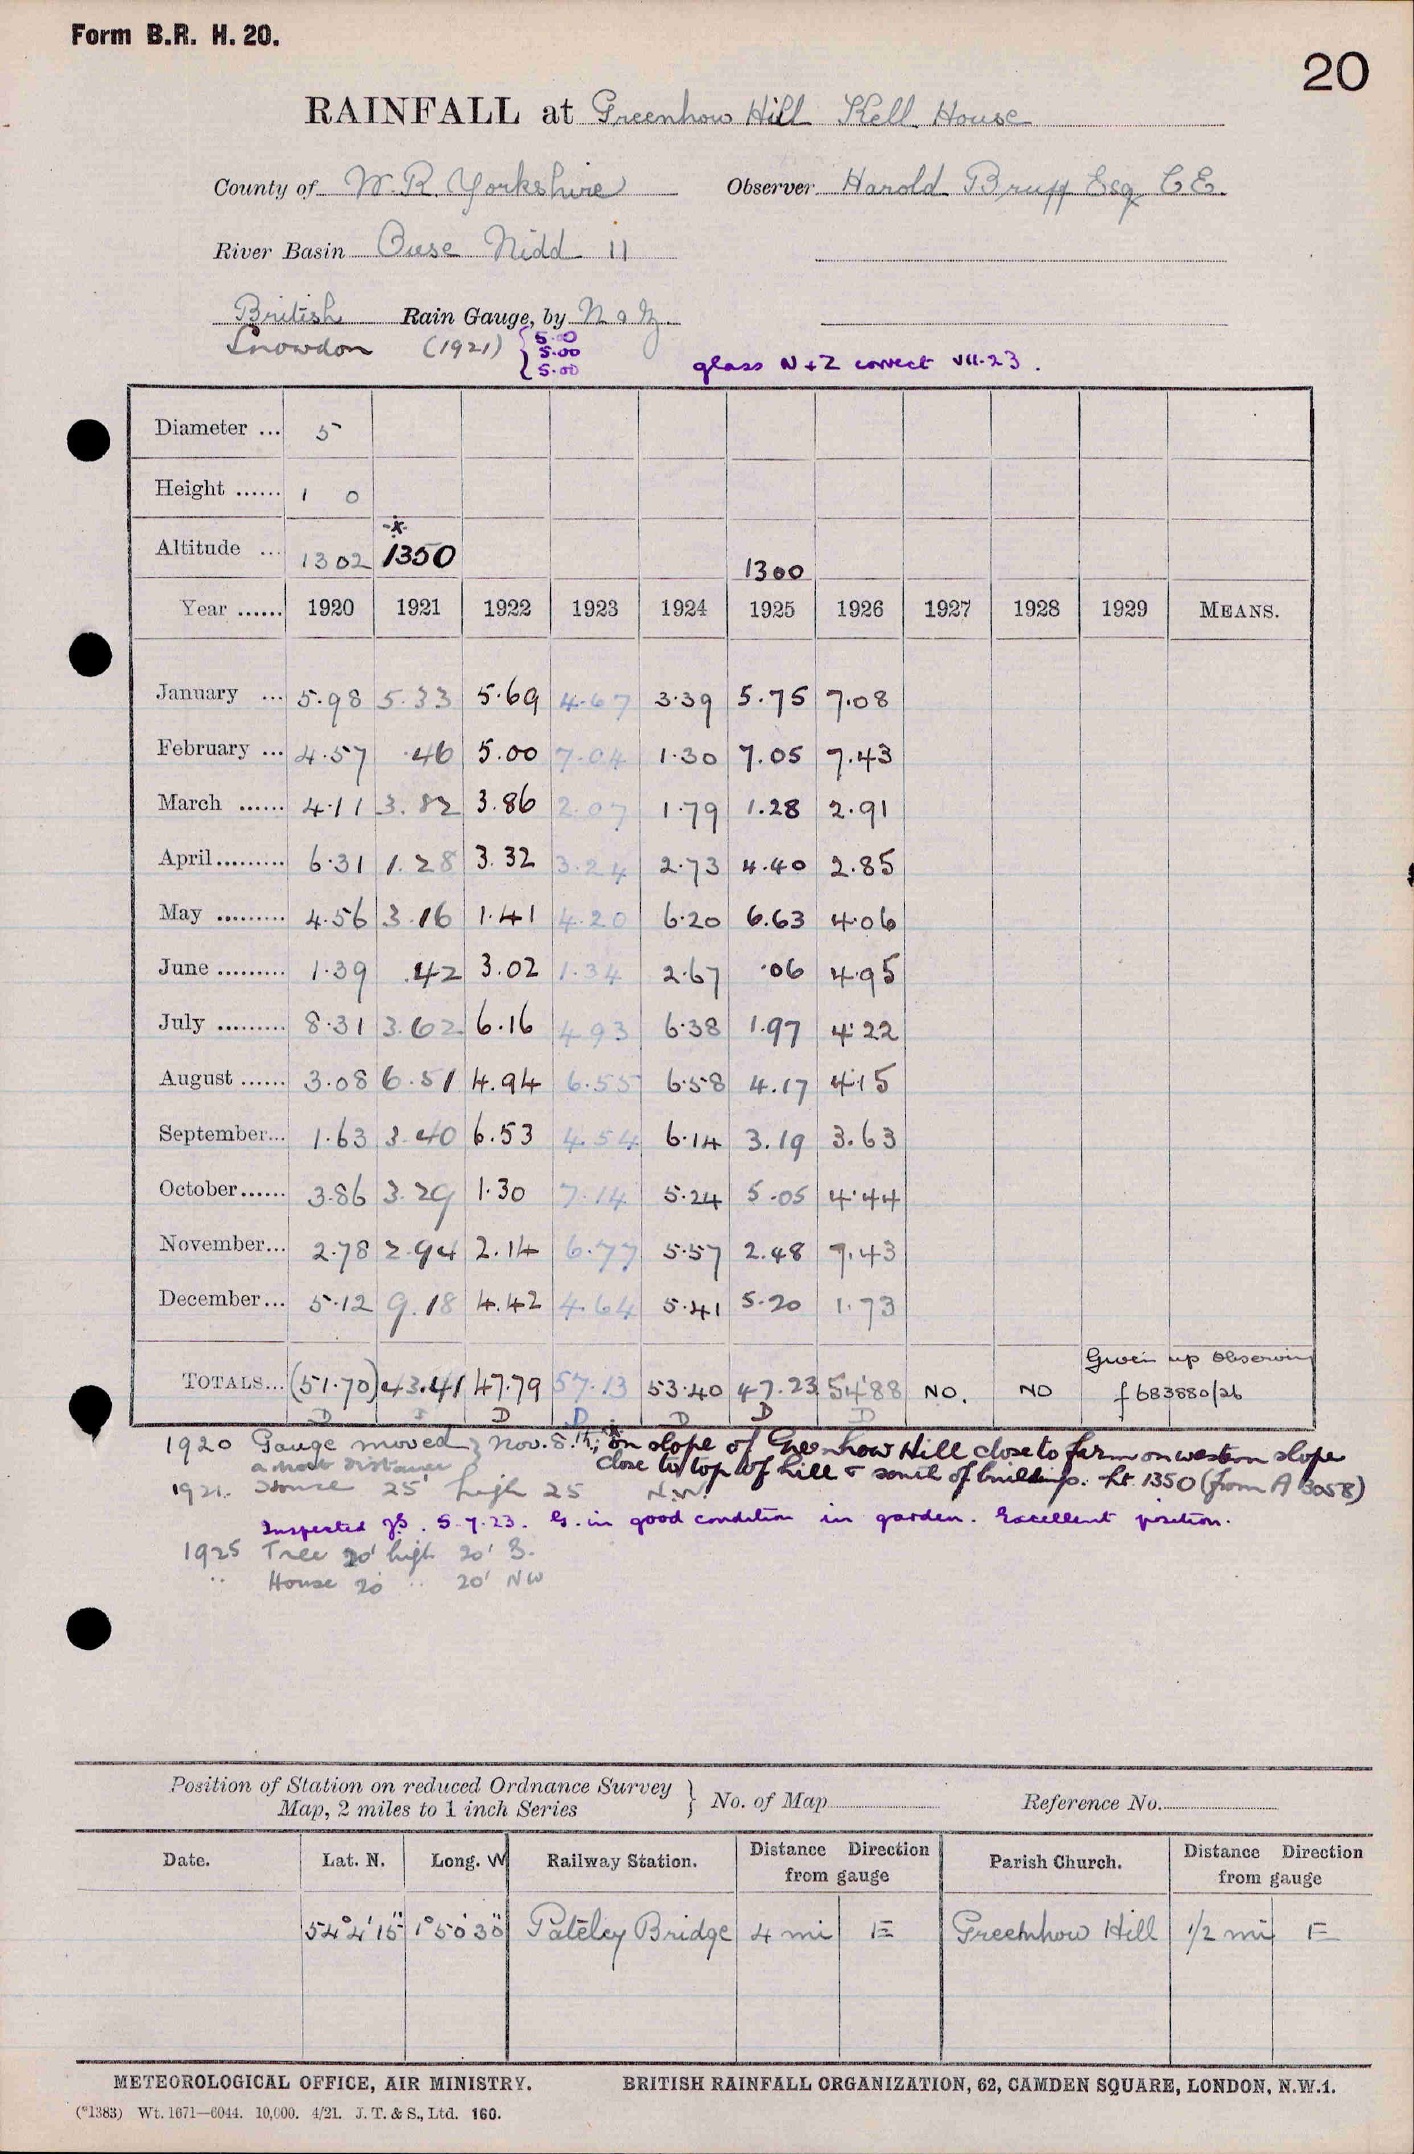 Form B.R. H. 20.
20
RAINFALL at Greenhow Hill Kell House
County of W. R. Yorkshire Observer Harold Bruff Esq C.E.
River Basin Ouse Nidd 11
British Rain Gauge, by N & Z.
Snowdon (1921) { 5.00
5.00
5.00
glass N + Z correct VII.23.
Diameter ... 5
Height ...... 1 0
*
Altitude ... 1302 1350 1300
Year ...... 1920 1921 1922 1923 1924 1925 1926 1927 1928 1929 MEANS.
January ... 5.98 5.33 5.69 4.67 3.39 5.75 7.08
February ... 4.57 .46 5.00 7.04 1.30 7.05 7.43
March ...... 4.11 3.82 3.86 2.07 1.79 1.28 2.91
April......... 6.31 1.28 3.32 3.24 2.73 4.40 2.85
May ......... 4.56 3.16 1.41 4.20 6.20 6.63 4.06
June ......... 1.39 .42 3.02 1.34 2.67 .06 4.95
July ......... 8.31 3.62 6.16 4.93 6.38 1.97 4.22
August ...... 3.08 6.51 4.94 6.55 6.58 4.17 4.15
September... 1.63 3.40 6.53 4.54 6.14 3.19 3.63
October...... 3.86 3.29 1.30 7.14 5.24 5.05 4.44
November... 2.78 2.94 2.14 6.77 5.57 2.48 7.43
December... 5.12 9.18 4.42 4.64 5.41 5.20 1.73
Given up observing
TOTALS... (51.70) 43.41 47.79 57.13 53.40 47.23 54.88 NO. NO f 683880/26
D D D D D D
1920 Gauge moved } Nov. 8.th; * on slope of Greenhow Hill close to farm on western slope
a short distance close to top of hill & south of buildings. ht. 1350 (from A 3058)
1921. House 25' high 25 N.W.
Inspected 5.7.23. G. in good condition in garden. Excellent position.
1925 Tree 20' high 20' S.
" House 20 " 20' NW
Position of Station on reduced Ordnance Survey
Map, 2 miles to 1 inch Series } No. of Map Reference No.
Date. Lat. N. Long. W Railway Station. Distance Direction from gauge Parish Church. Distance Direction from gauge
54° 4' 15" 1° 50' 30" Pateley Bridge 4 mi E Greenhow Hill 1/2 mi E
METEOROLOGICAL OFFICE, AIR MINISTRY. BRITISH RAINFALL ORGANIZATION, 62, CAMDEN SQUARE, LONDON, N.W.1.
(*1383) Wt. 1671—6044. 10,000. 4/21. J. T. & S., Ltd. 160.